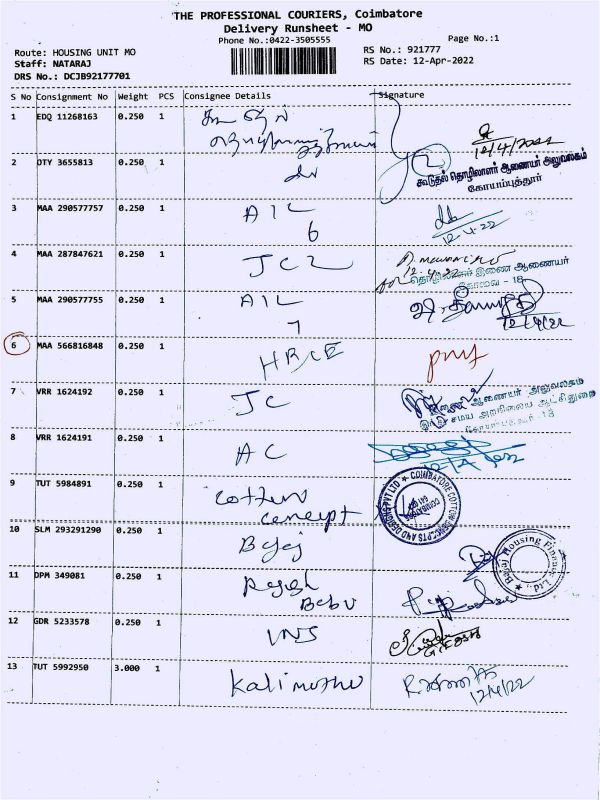 THE PROFESSIONAL COURIERS, Coimbatore
Delivery Runsheet - MO
Phone No.:0422-3505555
Page No.:1
Route: HOUSING UNIT MO
RS No.: 921777
Staff: NATARAJ
RS Date: 12-Apr-2022
DRS No.: DCJB92177701
S No Consignment No Weight PCS Consignee Details Signature
1 EDQ 11268163 0.250 1
12/4/2022
2 OTY 3655813 0.250 1
கூடுதல் தொழிலாளர் ஆணையர் அலுவலகம்
கோயம்புத்தூர்
3 MAA 290577757 0.250 1 AIL
6
12.4.22
4 MAA 287847621 0.250 1 JCL
12.4.22
தொழிலாளர் இணை ஆணையர்
கோவை - 18
5 MAA 290577755 0.250 1 AIL
7
12/4/22
6 MAA 566816848 0.250 1 HR/CE
7 VRR 1624192 0.250 1 JC
ஆணையர் அலுவலகம்
இந்து சமய அறநிலைய ஆட்சிதுறை
8 VRR 1624191 0.250 1 AC
9 TUT 5984891 0.250 1 Cotton
Concept
COIMBATORE COTTON CONCEPTS AND DESIGNS PVT LTD
COIMBATORE
10 SLM 293291290 0.250 1 Bajaj
Bajaj Housing Finance Ltd.,
11 DPM 349081 0.250 1 Rajesh
Babu
12 GDR 5233578 0.250 1 VNS
13 TUT 5992950 3.000 1 Kalimuthu
12/4/22